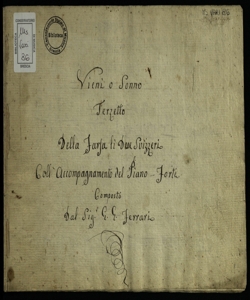 Vieni o Sonno
Terzetto
Della Farsa li Due Svizzeri
Coll' Accompagnamento del Piano-Forte
Composto
Dal Sigr G. G. Ferrari